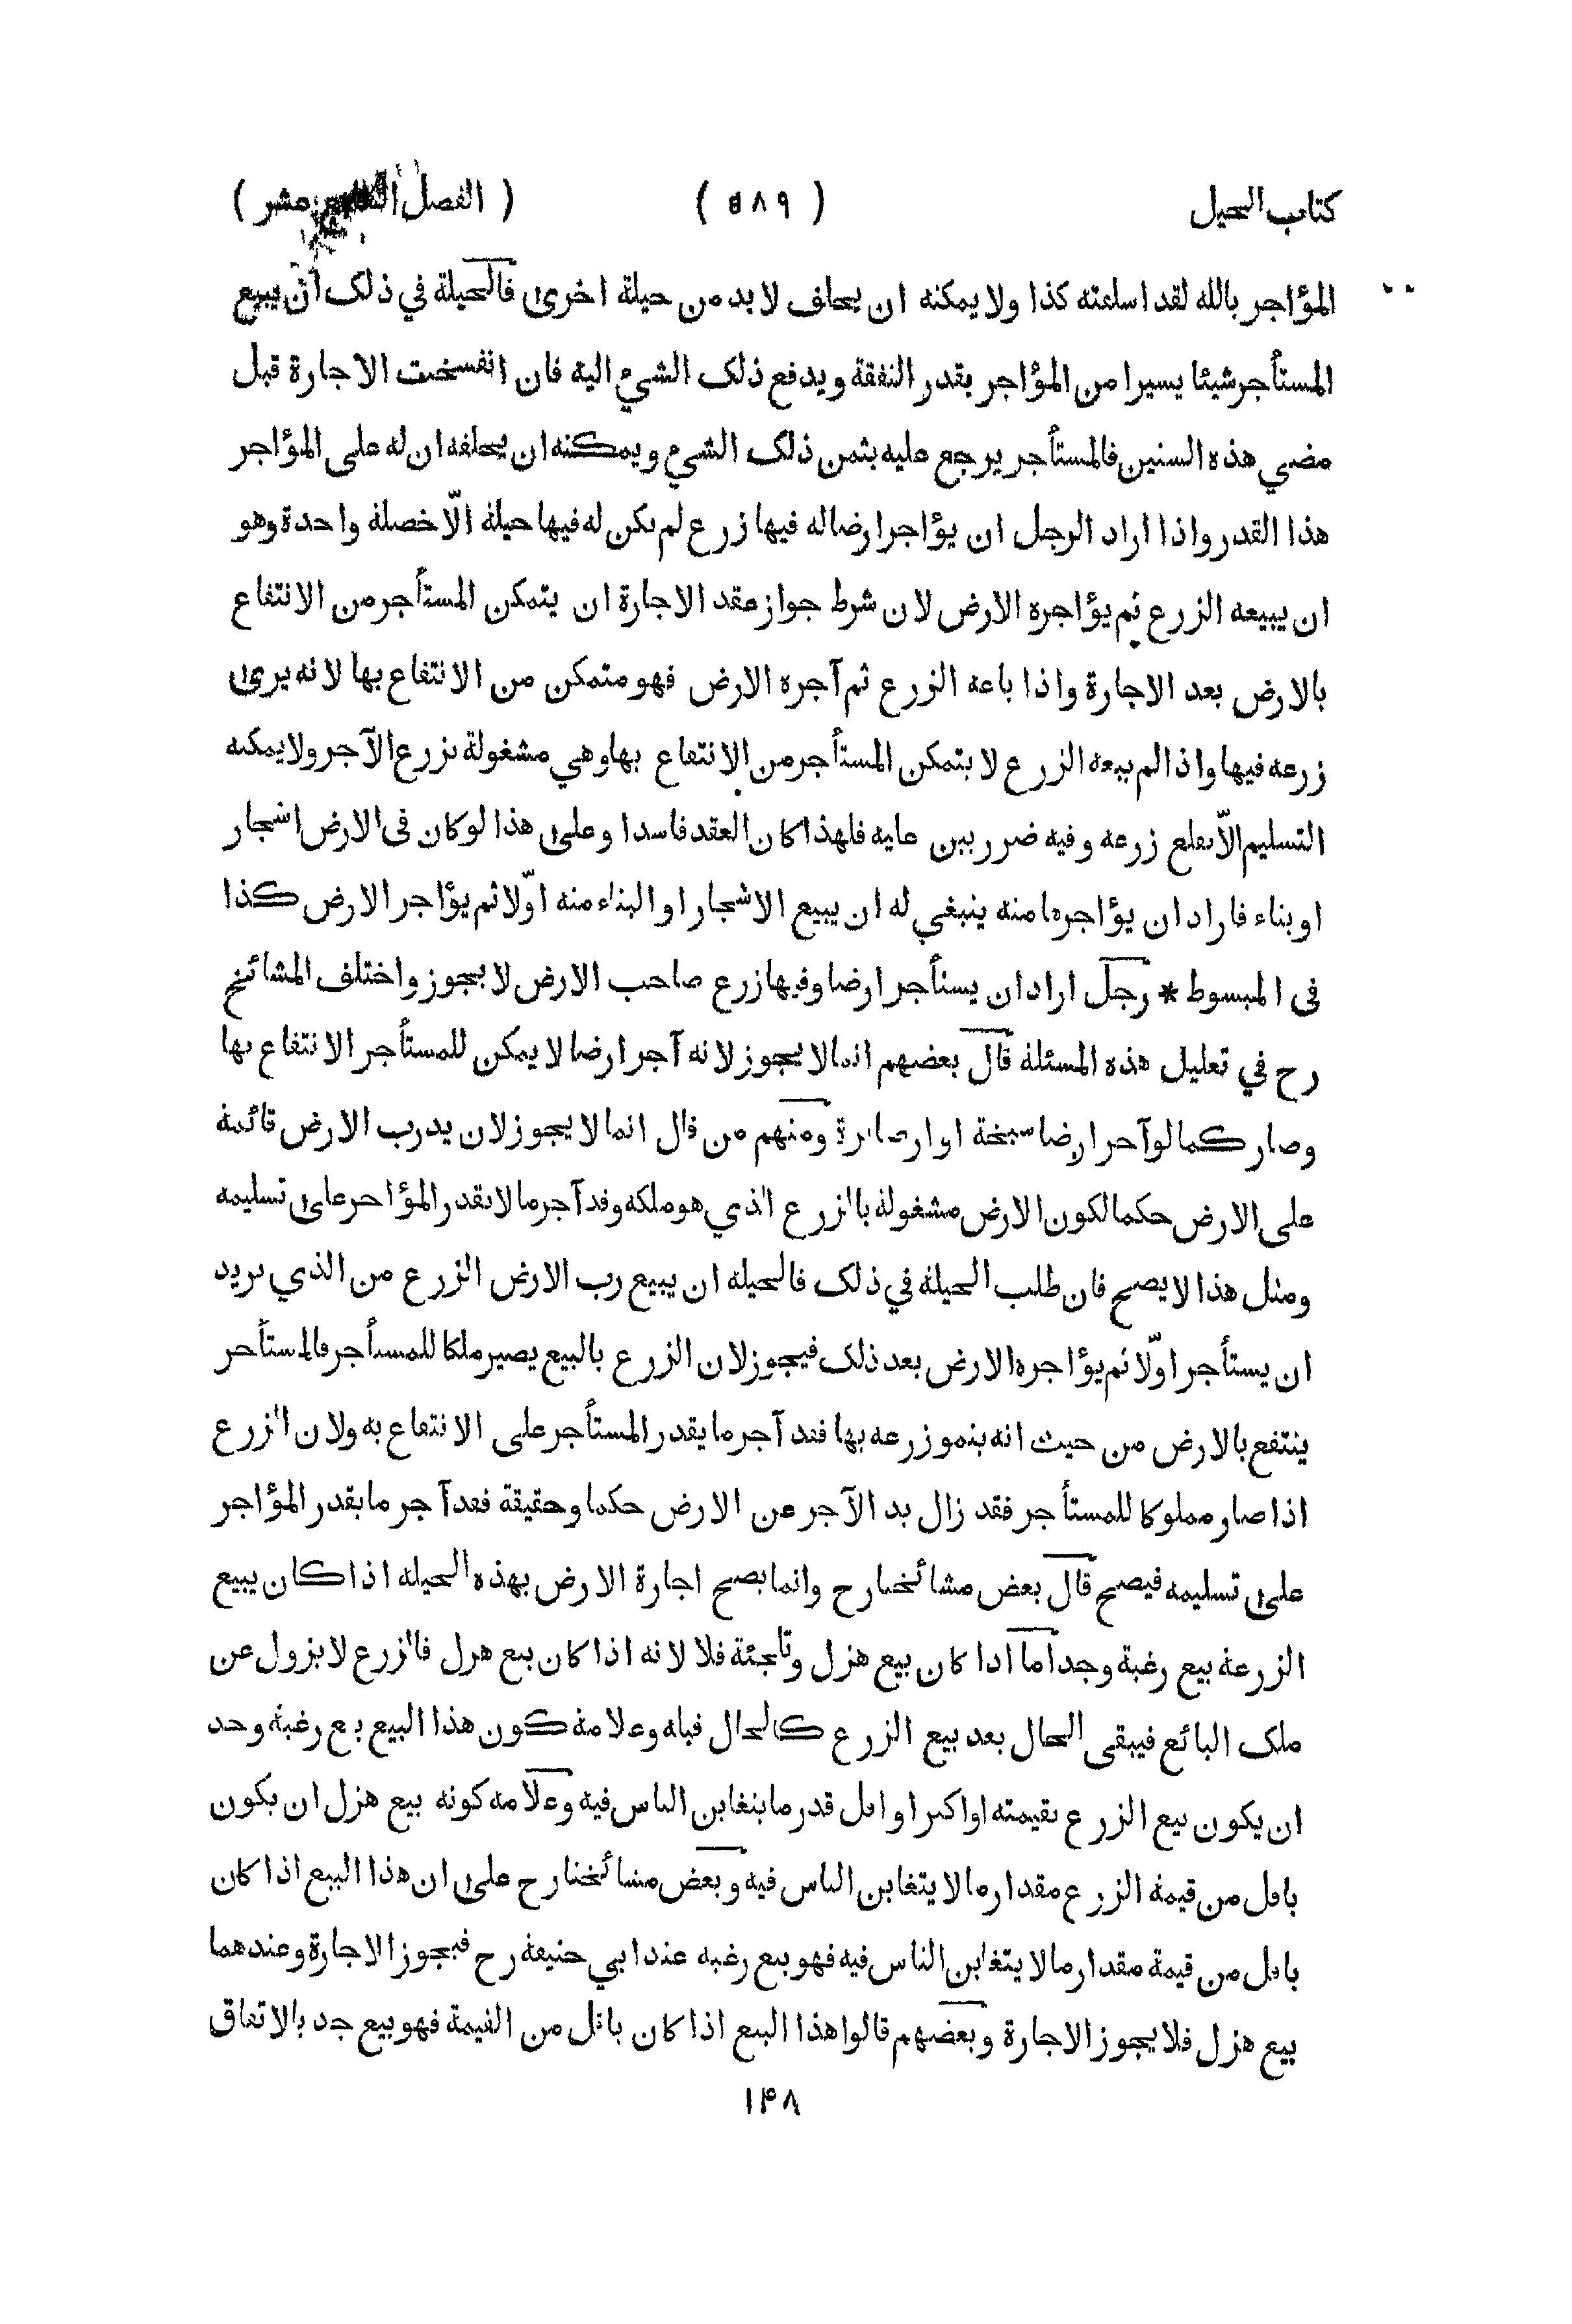 كتاب الحيل ( ٥٨٩ ) ( الفصل عشر )
المؤاجر بالله لقد اسلعته كذا ولا يمكنه ان يحلف لا بد من حيلة اخرى فالحيلة في ذلك ان يبيع
المستأجر شيئا يسيرا من المؤاجر بقدر النفقة ويدفع ذلك الشيء اليه فان انفسخت الاجارة قبل
مضي هذه السنين فالمستأجر يرجع عليه بثمن ذلك الشيء ويمكنه ان يحلفه ان له على المؤاجر
هذا القدر واذا اراد الرجل ان يؤاجر ارضا له فيها زرع لم يكن له فيها حيلة الّا خصلة واحدة وهو
ان يبيعه الزرع ثم يؤاجره الارض لان شرط جواز عقد الاجارة ان يتمكن المستأجر من الانتفاع
بالارض بعد الاجارة واذا باعه الزرع ثم آجره الارض فهو متمكن من الانتفاع بها لانه يربى
زرعه فيها واذا لم يبعه الزرع لا يتمكن المستأجر من الانتفاع بها وهي مشغولة بزرع الآجر ولا يمكنه
التسليم الّا بقلع زرعه وفيه ضرر بين عليه فلهذا كان العقد فاسدا وعلى هذا لو كان في الارض اشجار
او بناء فاراد ان يؤاجرها منه ينبغي له ان يبيع الاشجار او البناء منه اوّلا ثم يؤاجر الارض كذا
في المبسوط * رجل اراد ان يستأجر ارضا وفيها زرع صاحب الارض لا يجوز واختلف المشائخ
رح في تعليل هذه المسئلة قال بعضهم انما لا يجوز لانه آجر ارضا لا يمكن للمستأجر الانتفاع بها
وصار كما لو آجر ارضا سبخة او ارضا نزة ومنهم من قال انما لا يجوز لان يد رب الارض قائمة
على الارض حكما لكون الارض مشغولة بالزرع الذي هو ملكه وقد آجر ما لا يقدر المؤاجر على تسليمه
ومثل هذا لا يصح فان طلب الحيلة في ذلك فالحيلة ان يبيع رب الارض الزرع من الذي يريد
ان يستأجر اوّلا ثم يؤاجره الارض بعد ذلك فيجوز لان الزرع بالبيع يصير ملكا للمستأجر فالمستأجر
ينتفع بالارض من حيث انه ينمو زرعه بها فقد آجر ما يقدر المستأجر على الانتفاع به ولان الزرع
اذا صار مملوكا للمستأجر فقد زال يد الآجر عن الارض حكما وحقيقة فقد آجر ما يقدر المؤاجر
على تسليمه فيصح قال بعض مشائخنا رح وانما يصح اجارة الارض بهذه الحيلة اذا كان يبيع
الزرعة بيع رغبة وجد اما اذا كان بيع هزل وتلجئة فلا لانه اذا كان بيع هزل فالزرع لا يزول عن
ملك البائع فيبقى الحال بعد بيع الزرع كالحال قبله وعلامة كون هذا البيع بيع رغبة وجد
ان يكون بيع الزرع بقيمته او اكثر او اقل قدر ما يتغابن الناس فيه وعلامة كونه بيع هزل ان يكون
باقل من قيمة الزرع مقدار ما لا يتغابن الناس فيه وبعض مشائخنا رح على ان هذا البيع اذا كان
باقل من قيمة مقدار ما لا يتغابن الناس فيه فهو بيع رغبة عند ابي حنيفة رح فيجوز الاجارة وعندهما
بيع هزل فلا يجوز الاجارة وبعضهم قالوا هذا البيع اذا كان باقل من القيمة فهو بيع جد بالاتفاق
١٤٨